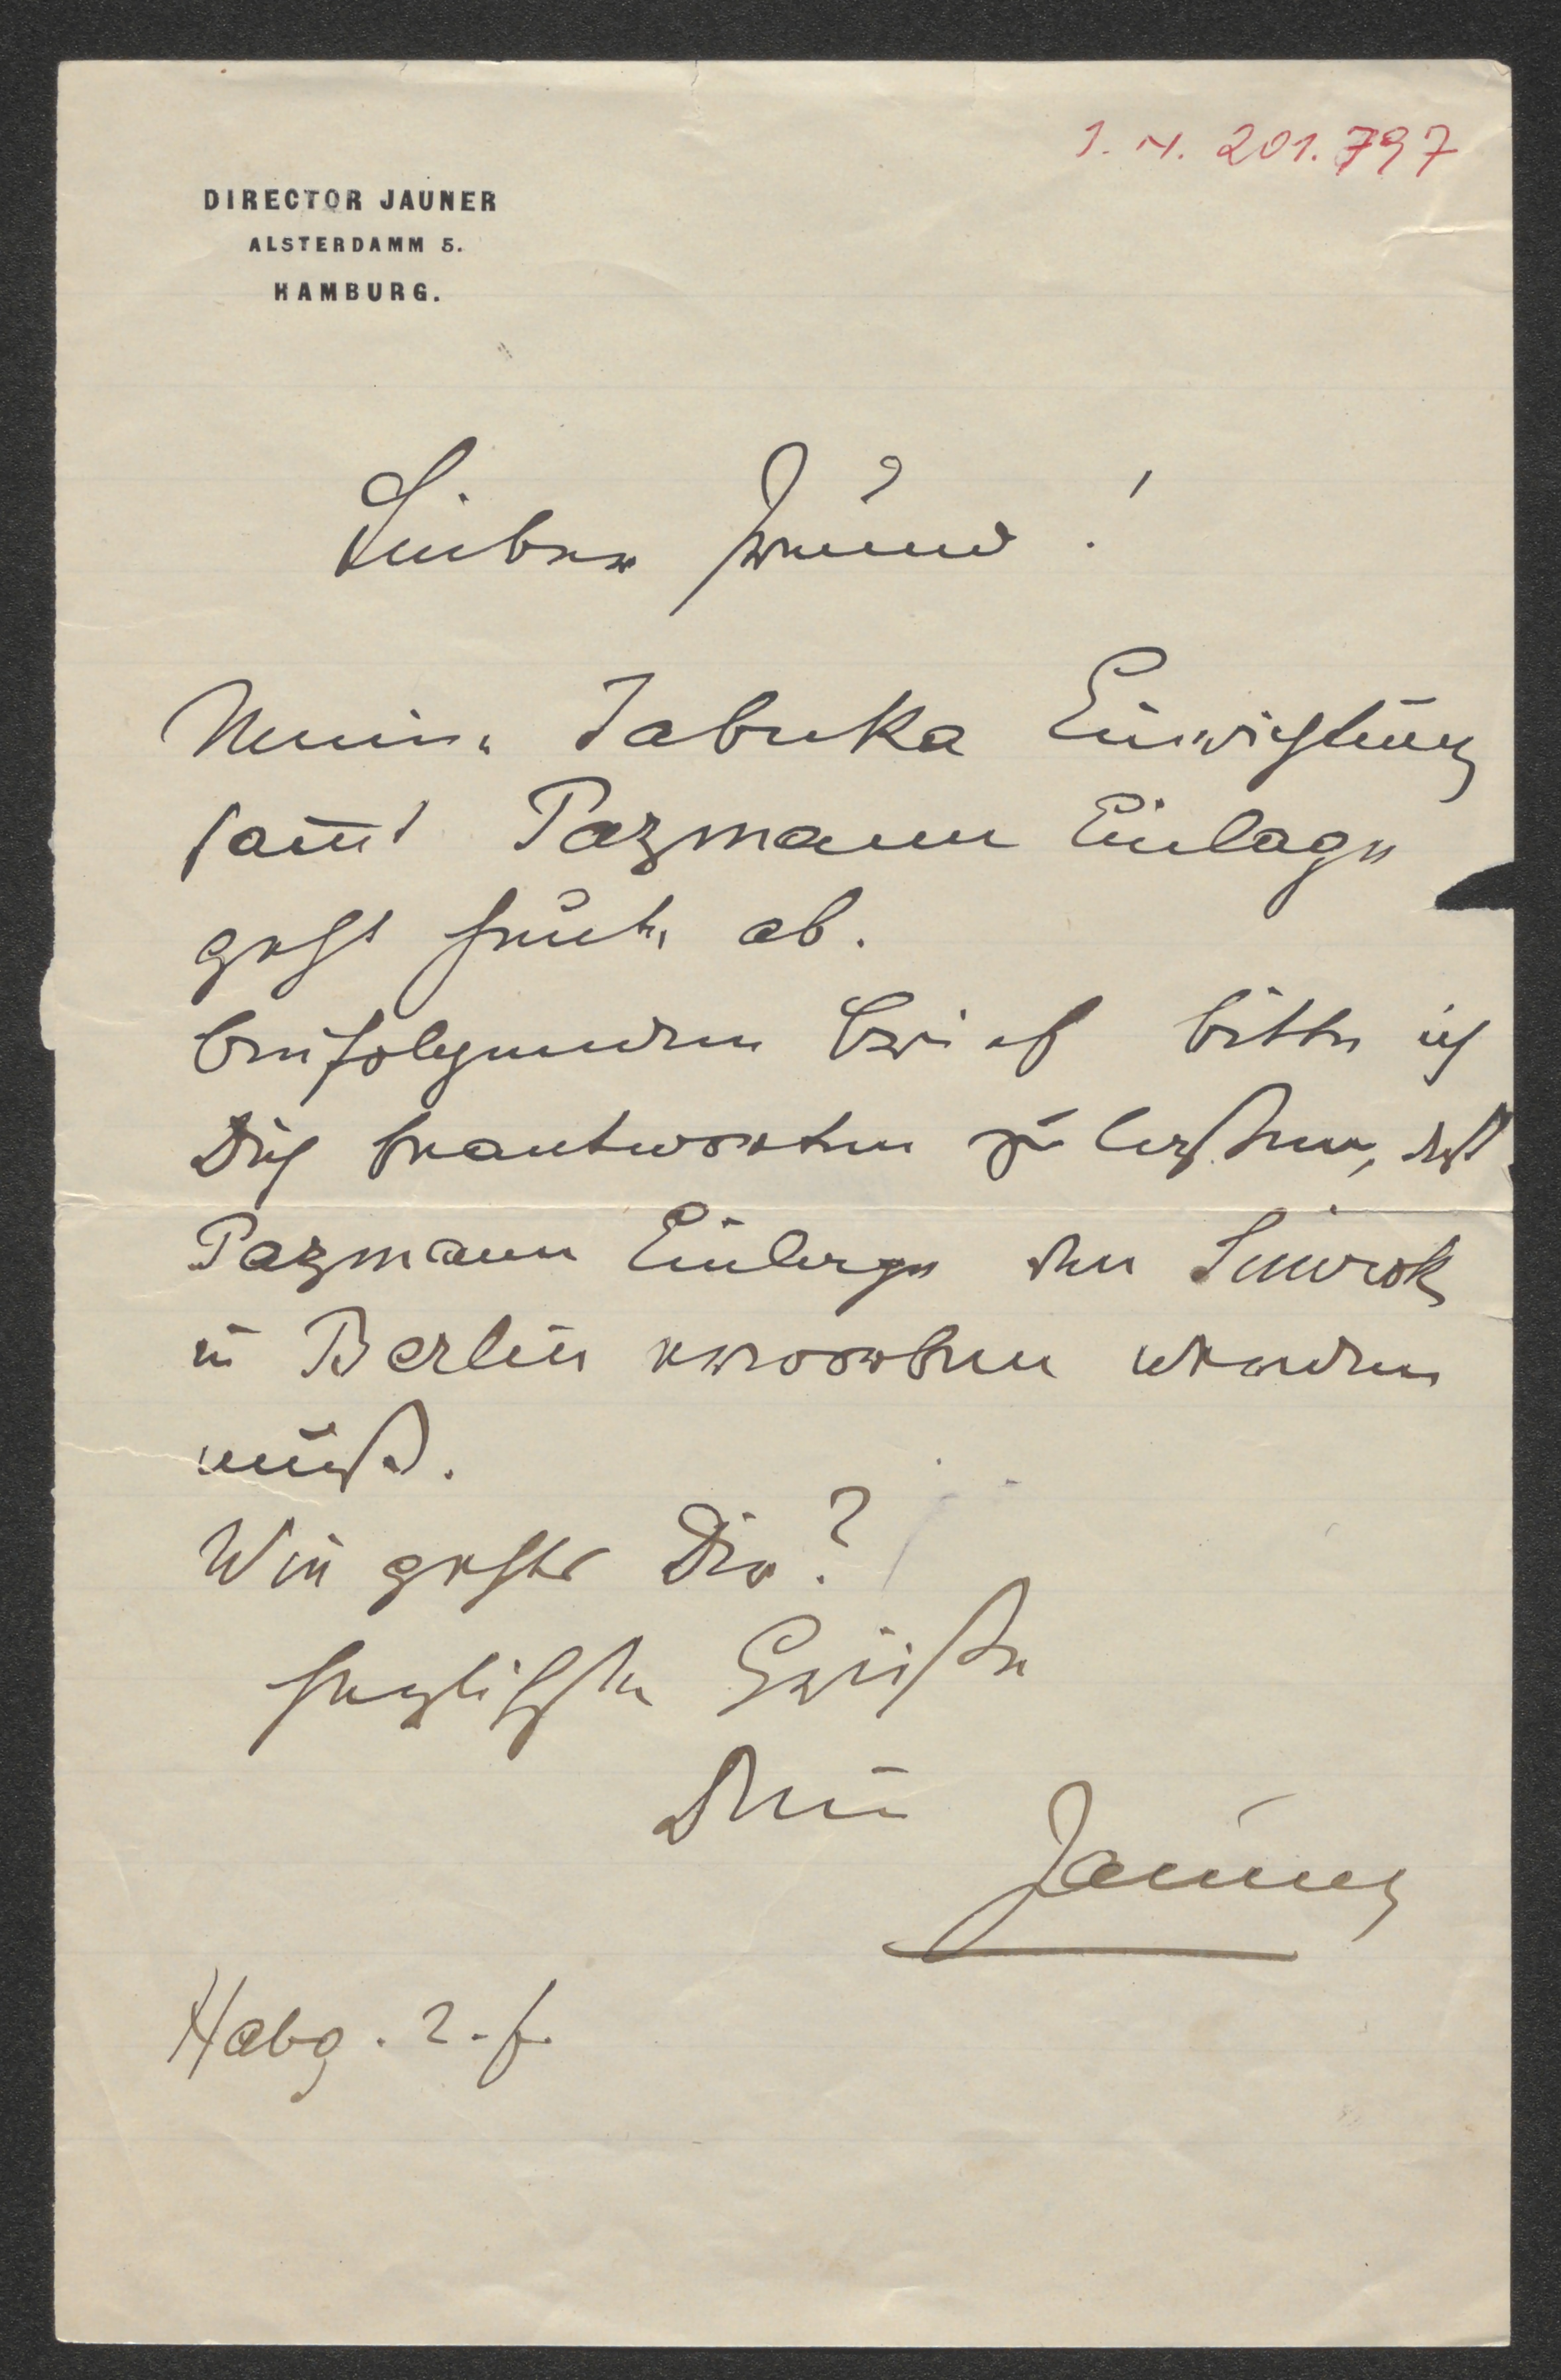 I. N. 201.797
DIRECTOR JAUNER
ALSTERDAMM 5.
HAMBURG.
Lieber Freund!
Meine Jabuka Einrichtung
sam̄t Pazmann Einlage
geht heute ab.
beifolgenden Brief bitte ich
Dich beantworten zu lassen, daß
Pazmann Einlage von Simrok
in Berlin erworben werden
muß.
Wie gehts Dir?
herzlichste Grüße
Dein
Jauner
Habg. 2.